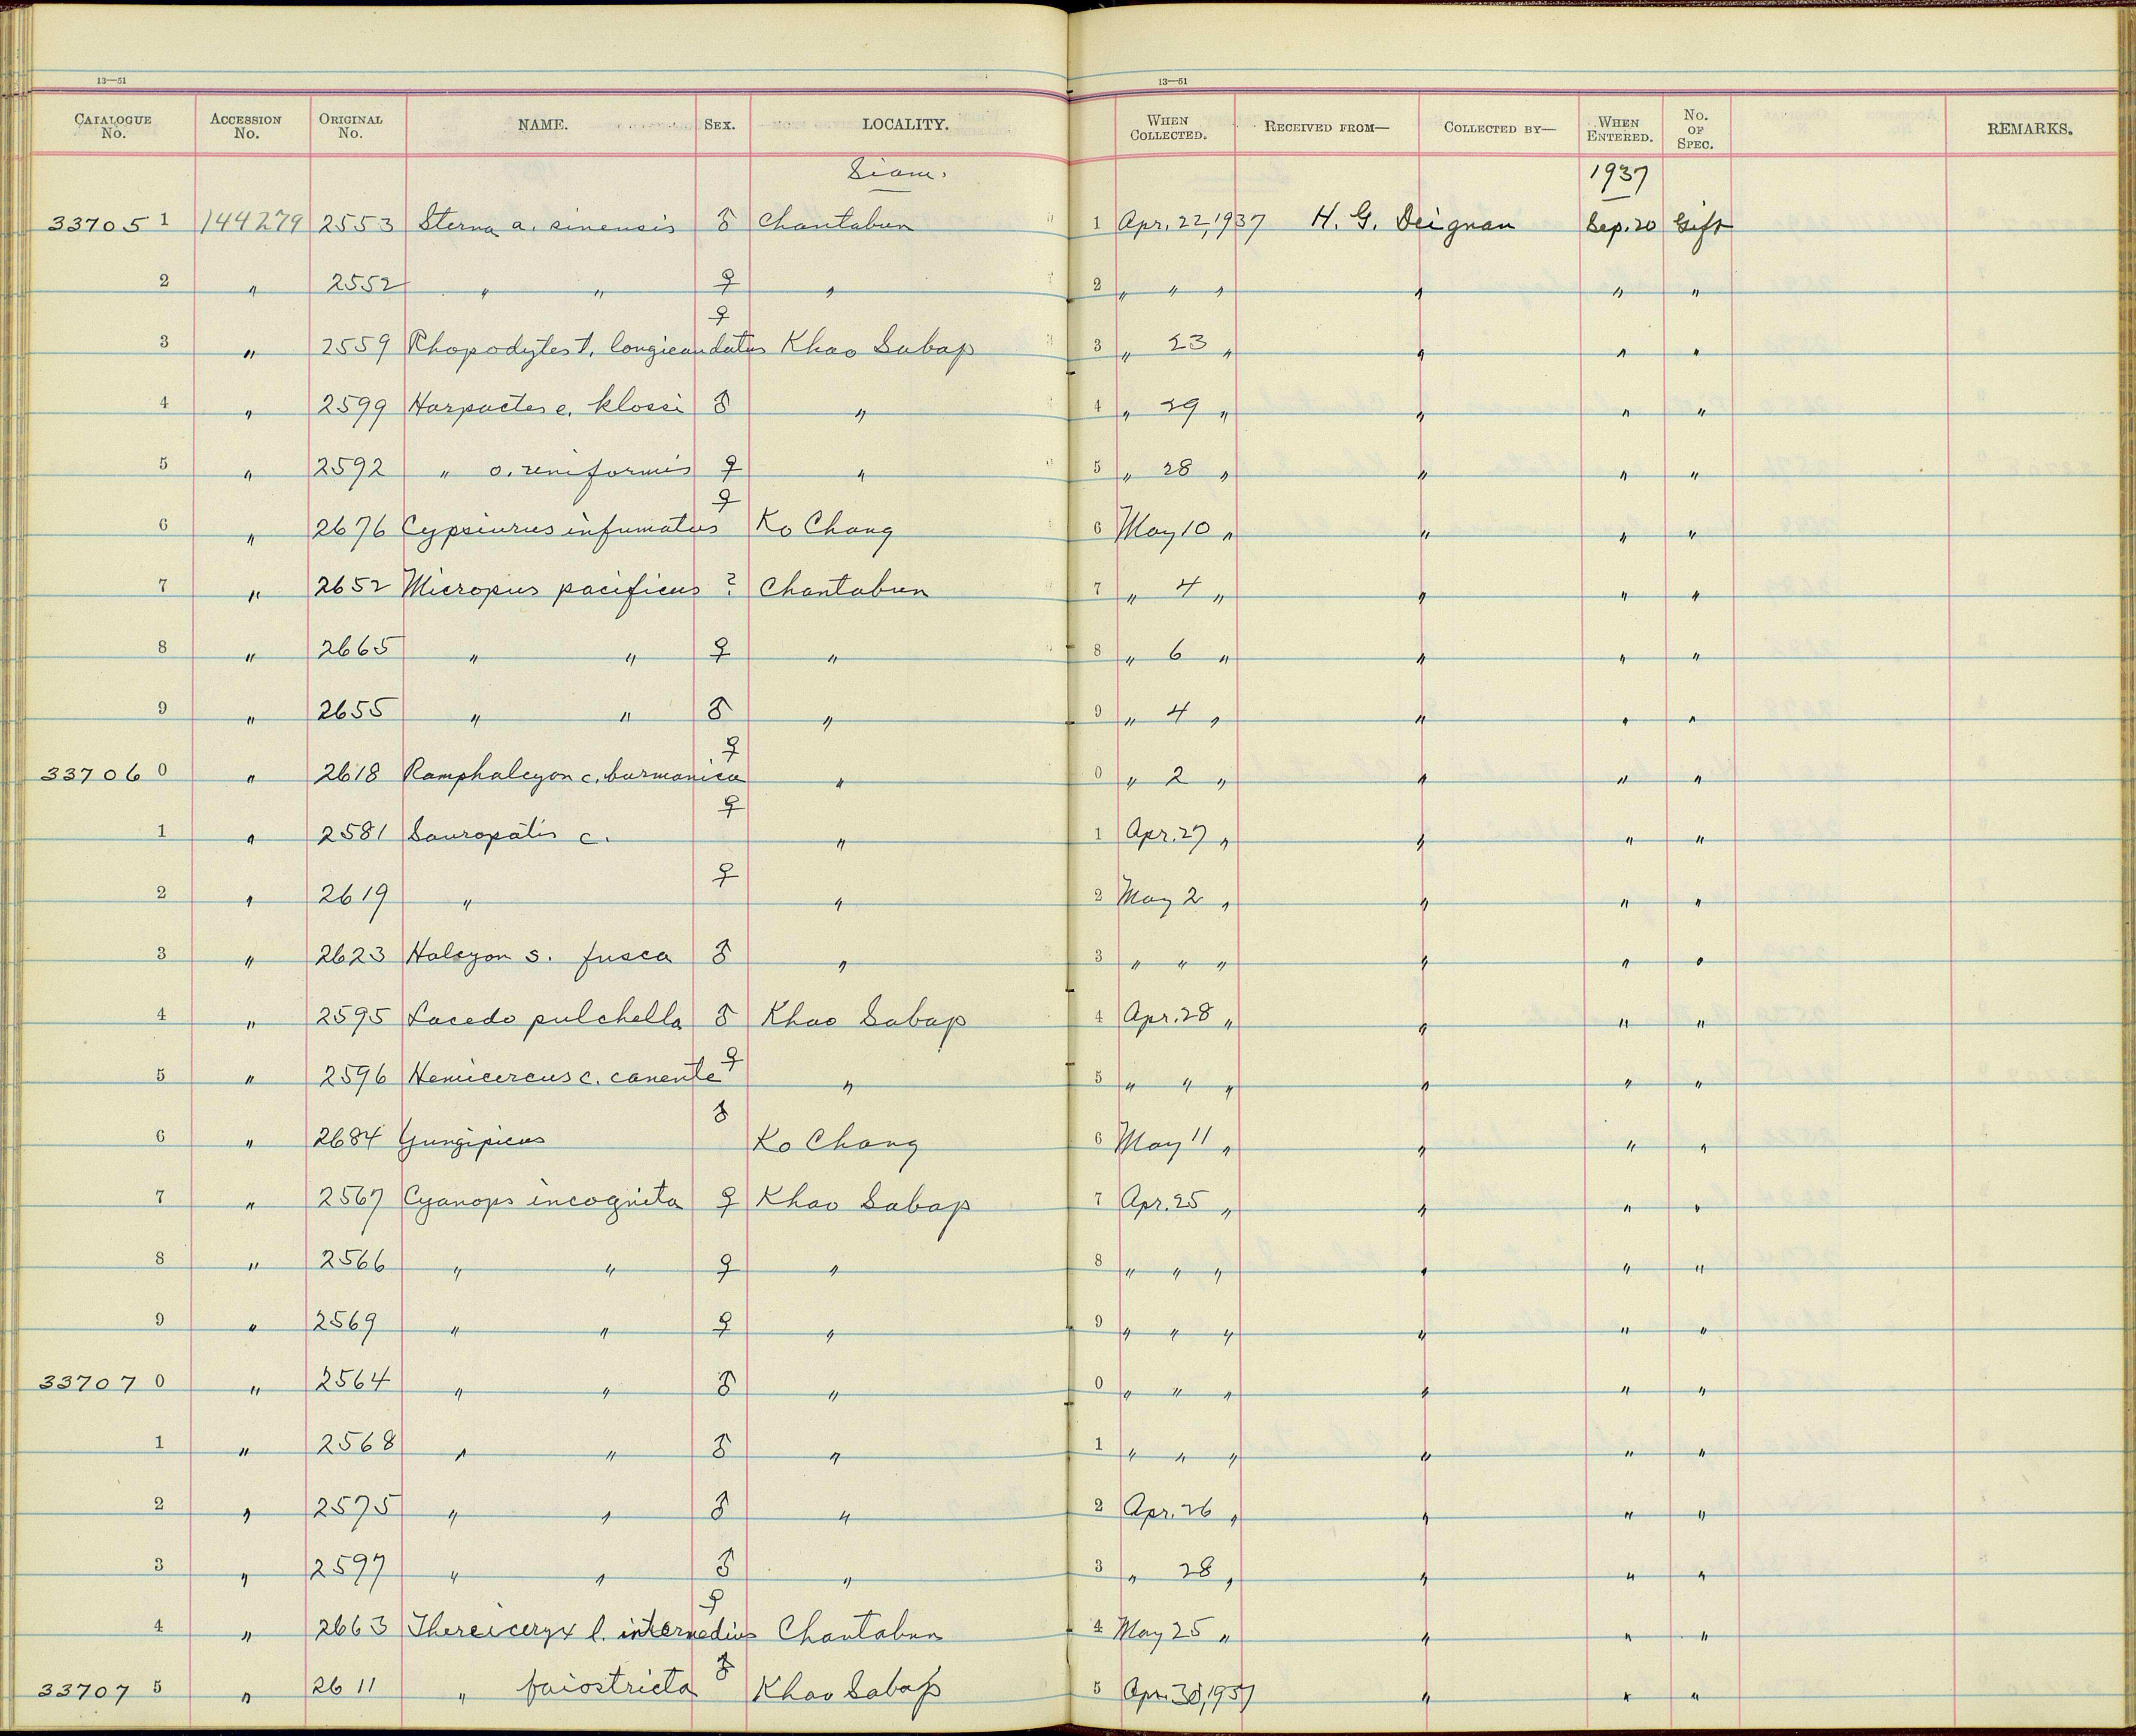 13—51 13—51
CATALOGUE No. ACCESSION No. ORIGINAL No. NAME. SEX. LOCALITY. WHEN COLLECTED. RECEIVED FROM— COLLECTED BY— WHEN ENTERED. No. OF SPEC. REMARKS.
Siam. 1937
33705 1 144279 2553 Sterna a. sinensis ♂ Chantabun 1 Apr. 22, 1937 H. G. Deignan Sep. 20 Gift
2 " 2552 " " ♀ " 2 " " " " " "
3 " 2559 Rhopodytes t. longicaudatus ♀ Khao Sabap 3 " 23 " " " "
4 " 2599 Harpactes e. klossi ♂ " 4 " 29 " " " "
5 " 2592 " o. uniformis ♀ " 5 " 28 " " " "
6 " 2676 Cypsiurus infumatus ♀ Ko Chang 6 May 10 " " " "
7 " 2652 Micropus pacificus ? Chantabun 7 " 4 " " " "
8 " 2665 " " ♀ " 8 " 6 " " " "
9 " 2655 " " ♂ " 9 " 4 " " " "
33706 0 " 2618 Ramphalcyon c. burmanica ♀ " 0 " 2 " " " "
1 " 2581 Sauropatis c. ♀ " 1 Apr. 27 " " " "
2 " 2619 " ♀ " 2 May 2 " " " "
3 " 2623 Halcyon s. fusca ♂ " 3 " " " " " "
4 " 2595 Lacedo pulchella ♂ Khao Sabap 4 Apr. 28 " " " "
5 " 2596 Hemicercus c. canente ♀ " 5 " " " " " "
6 " 2684 Yungipicus ♂ Ko Chang 6 May 11 " " " "
7 " 2567 Cyanops incognita ♀ Khao Sabap 7 Apr. 25 " " " "
8 " 2566 " " ♀ " 8 " " " " " "
9 " 2569 " " ♀ " 9 " " " " " "
33707 0 " 2564 " " ♂ " 0 " " " " " "
1 " 2568 " " ♂ " 1 " " " " " "
2 " 2575 " " ♂ " 2 Apr. 26 " " " "
3 " 2597 " " ♂ " 3 " 28 " " " "
4 " 2663 Thereiceryx l. intermedius ♀ Chantabun 4 May 25 " " " "
33707 5 " 2611 " faiostricta ♂ Khao Sabap 5 Apr. 30, 1937 " " "